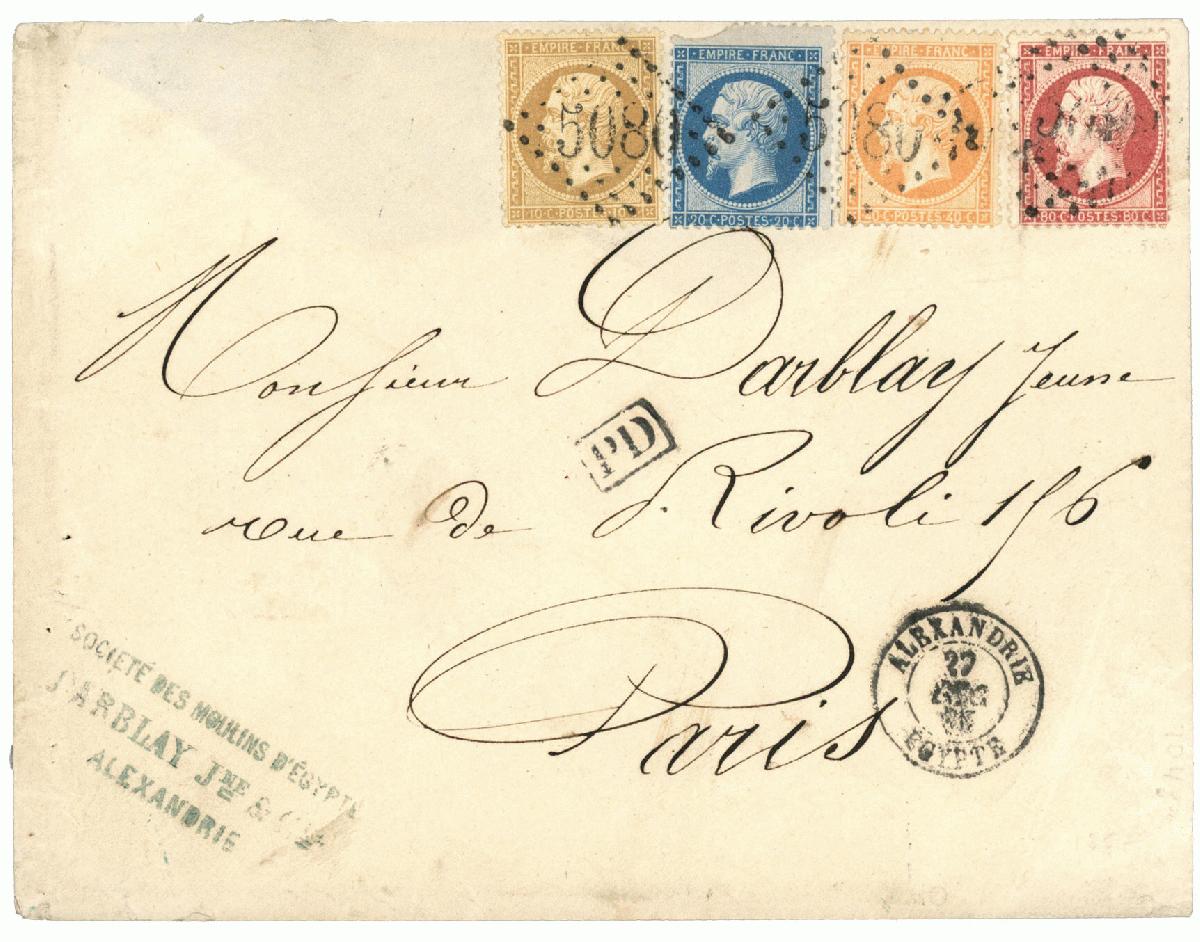 EMPIRE · FRANC · 10 · C · POSTES · 10 · C
EMPIRE · FRANC · 20 · C · POSTES · 20 · C
EMPIRE · FRANC · 40 · C · POSTES · 40 · C
EMPIRE · FRANC · 80 · C · POSTES · 80 · C
5080 5080
Monsieur Darblay Jeune
PD
rue de Rivoli 156
Paris
ALEXANDRIE
27
EGYPTE
SOCIÉTÉ DES MOULINS D'ÉGYPTE
DARBLAY JNE & CIE
ALEXANDRIE